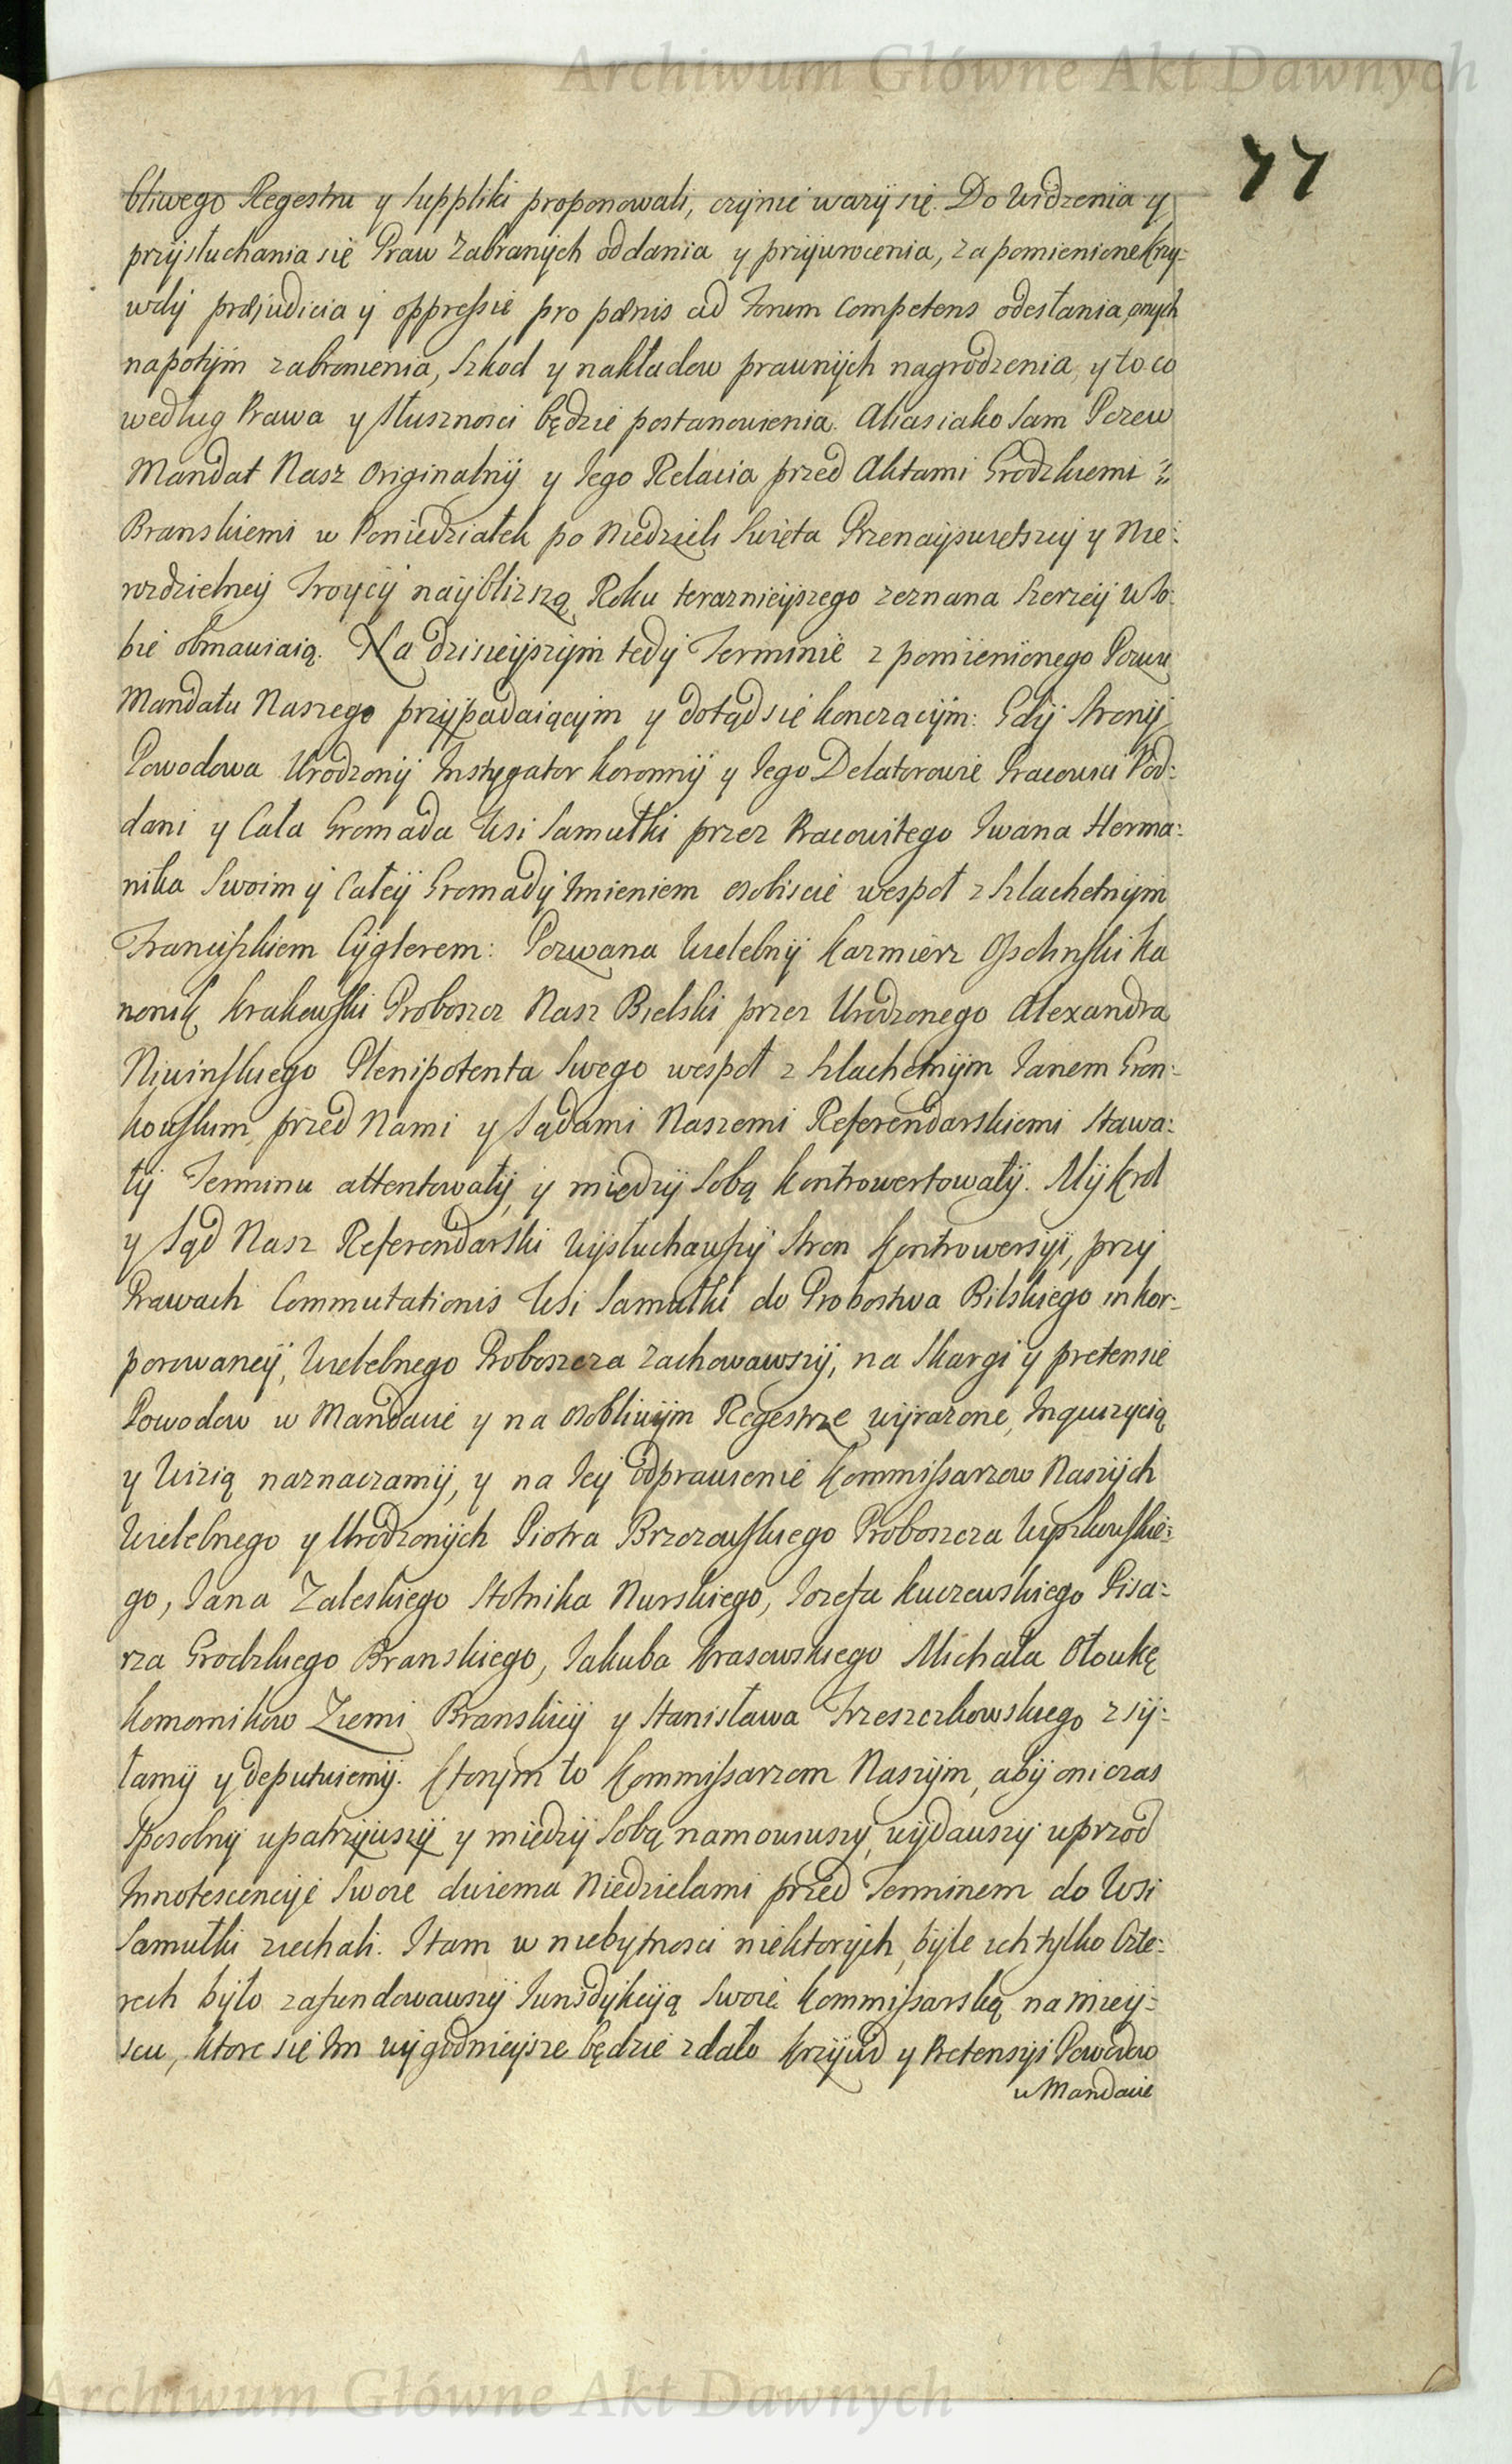 Archiwum Główne Akt Dawnych
77
bliwego Regestru y Suppliki proponowali, czynić ważyi się. Do Widzenia y
przysłuchania się Praw Zabranych oddania y przywrocenia, za pomienione Krzy:
wdy præjudicia y oppressie pro pœnis ad Forum Competens odesłania, onych
napotym zabronienia, Szkod y nakładow prawnych nagrodzenia, y to co
według Prawa y słusznosci będzie postanowienia. Aliasiako Sam Pozew
Mandat Nasz Originalny y Iego Relacia przed Aktami Grodzkiemi
Branskiemi w Poniedziałek po Niedzieli Swięta Przenayswiętszey y Nie:
rozdzielney Troycy nayblizszą Roku teraznieyszego zeznana Szerzey w So:
bie obmawiaią. Na dzisieyszym tedy Terminie z pomienionego Pozwu
Mandatu Naszego przypadaiącym y dotąd się konczącym: Gdy Strony
Powodowa Urodzony Instygator Koronny y Iego Delatorowie Pracowici Pod:
dani y Cała Gromada Wsi Samułki przez Pracowitego Iwana Herma:
nika Swoim y Całey Gromady Imieniem osobiscie wespoł z Szlachetnym
Franciszkiem Cyglerem: Pozwana Wielebny Kazmierz Ossolinski Ka
nonik Krakowski Proboszcz Nasz Bielski przez Urodzonego Alexandra
Niwinskiego Plenipotenta Swego wespoł z Szlachetnym Ianem Gron:
kowskim, przed Nami y Sądami Naszemi Referendarskiemi Stawa:
ły Terminu attentowały, y między Sobą Kontrowertowały. My Krol
y Sąd Nasz Referendarski Wysłuchawszy Stron Kontrowersyi, przy
Prawach Commutationis Wsi Samułki do Probostwa Bilskiego inkor:
porowaney, Wielebnego Proboszcza Zachowawszy, na Skargi y pretensie
Powodow w Mandacie y na osobliwym Regestrze wyrazone, Inquizycią
y Wizią naznaczamy, y na Iey odprawienie Kommissarzow Naszych
Wielebnego y Urodzonych Piotra Brzozowskiego Proboszcza Wyszkowskie:
go, Iana Zaleskiego Stolnika Nurskiego, Iozefa Kuczewskiego Pisa:
rza Grodzkiego Branskiego, Iakuba Krasowskiego Michała Ołoukę
Komornikow Ziemi Branskiey y Stanisława Trzeszczkowskiego zsy:
łamy y deputuiemy. Ktorym to Kommissarzom Naszym, aby oni czas
Sposobny upatrzywszy y między Sobą namowiwszy, wydawszy wprzod
Innotescencyje Swoie dwiema Niedzielami przed Terminem do Wsi
Samułki ziechali. I tam w niebytnosci niektorych, byle ich tylko Czte:
rech było zafundowawszy Iurisdykcyą Swoię Kommissarską na miey:
scu, ktore się Im wygodnieysze będzie zdało Krzywd y Pretensyi Powodow
w Mandacie
Archiwum Główne Akt Dawnych